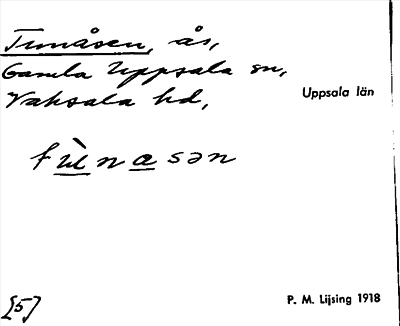 Tunåsen, ås,
Gamla Uppsala sn,
Vaksala hd,
Uppsala län
[5]
P. M. Lijsing 1918